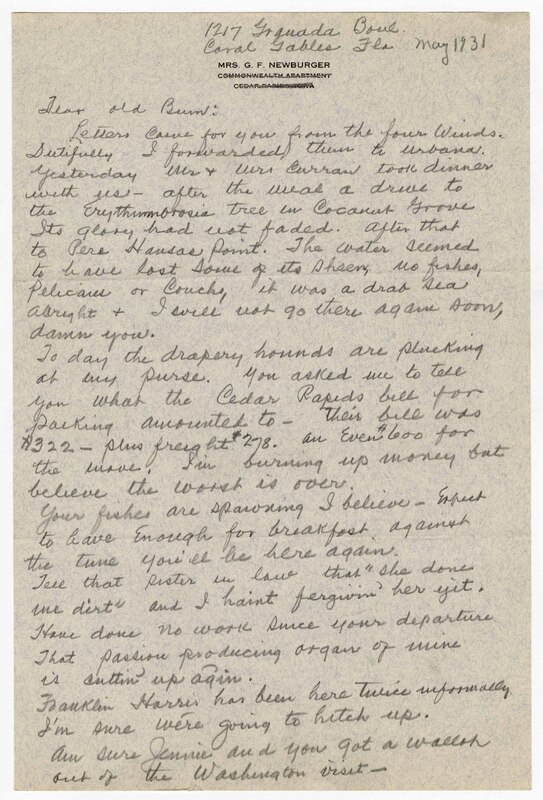 1217 Granada Boul.
Coral Gables Fla May 1931
MRS. G. F. NEWBURGER
COMMONWEALTH APARTMENT
CEDAR RAPIDS, IOWA
Dear old Bum:
Letters came for you from the four winds.
Dutifully I forwarded them to Urbana.
Yesterday Mr & Mrs Curran took dinner
with us - after the meal a drive to
the tree in Cocoanut Grove
Its glory had not faded. After that
to Pere Hansas Point. The water seemed
to have lost some of its sheen, no fishes,
Pelicans or Conchs, it was a drab sea
alright & I will not go there again soon,
damn you.
To day the drapery hounds are plucking
at my purse. You asked me to tell
you what the Cedar Rapids bill for
packing amounted to - their bill was
$322 - plus freight $278. an Even $600 for
the move. I'm burning up money but
believe the worst is over.
Your fishes are spawning I believe - Expect
to have Enough for breakfast against
the time you'll be here again.
Tell that sister in law that "she done
me dirt" and I haint fergivin' her yit.
Have done no work since your departure
That passion producing organ of mine
is cuttin' up agin.
Franklin Harris has been here twice informally
I'm sure we're going to hitch up.
Am sure Jennie and you got a wallop
out of the Washington visit -